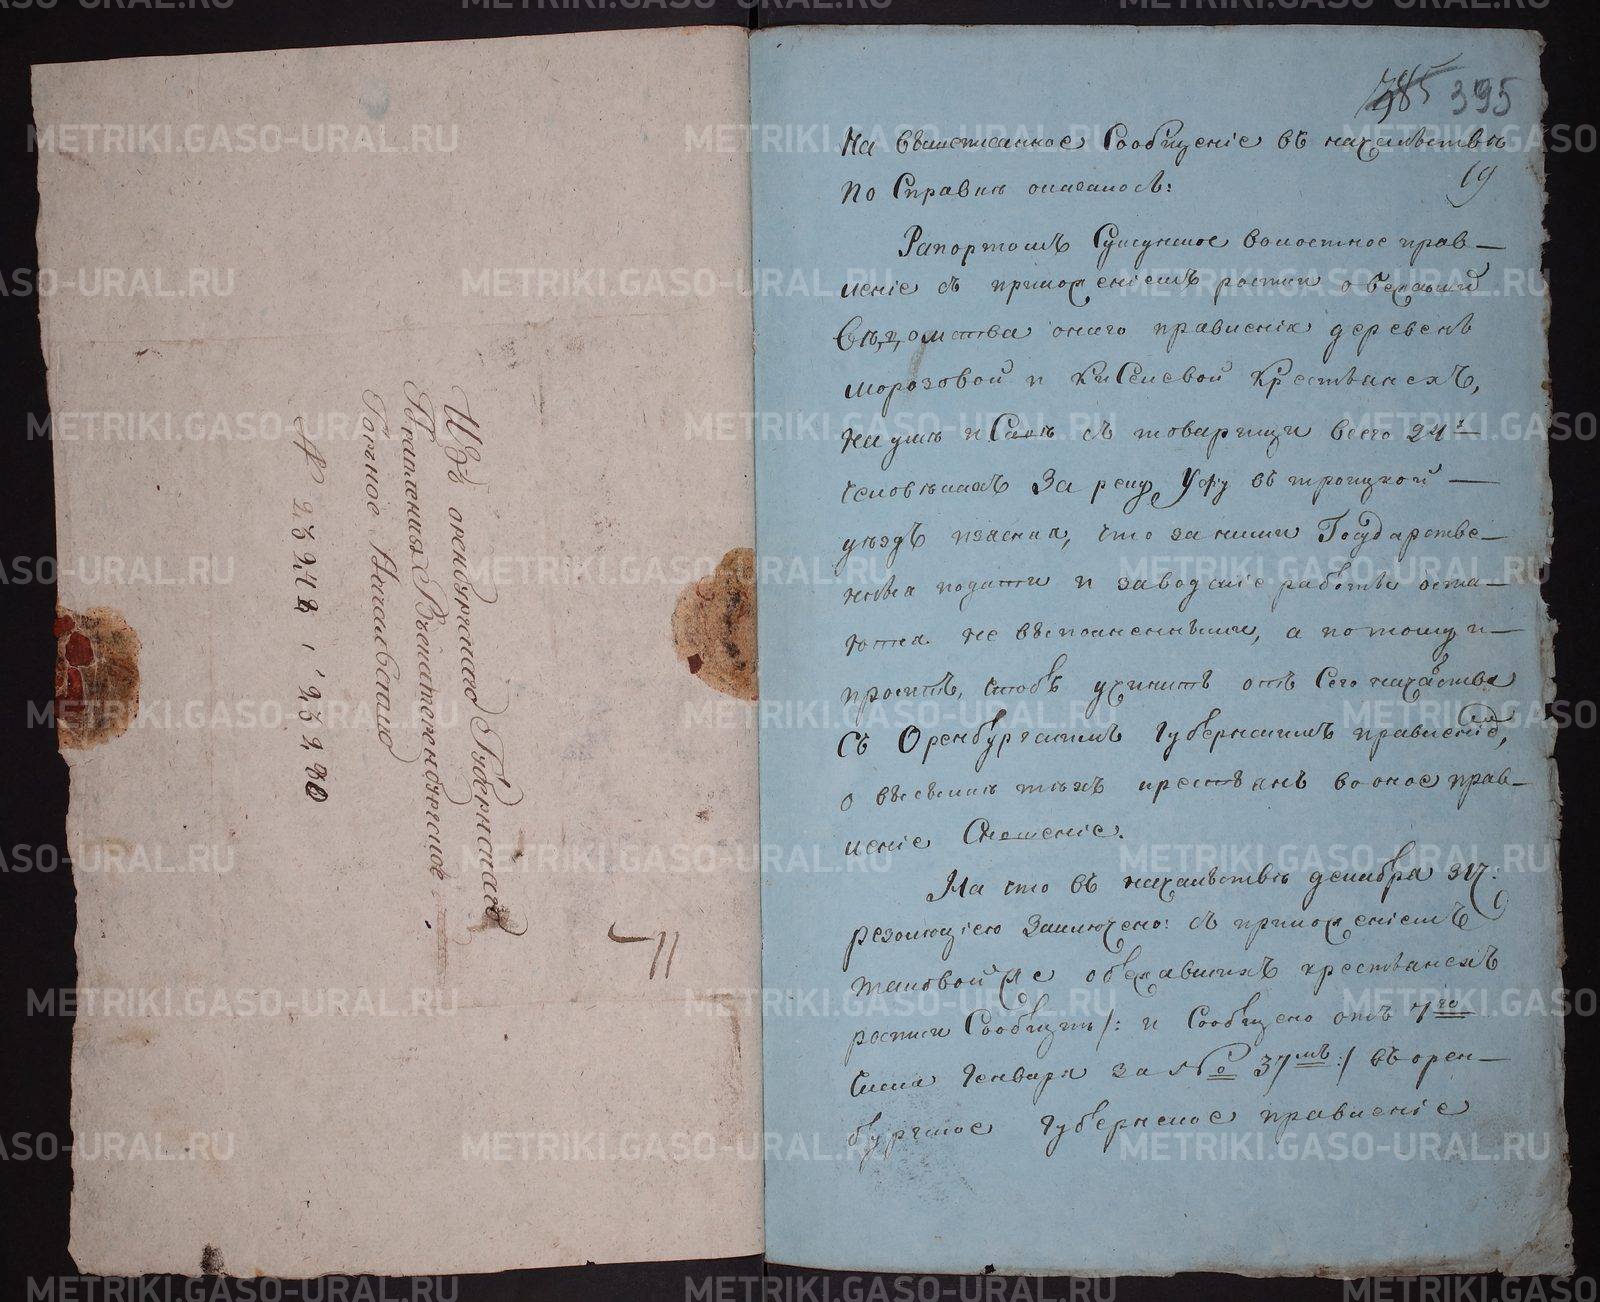 Изъ оренбургскаго Губернскаго
Правления Въ екатеринбургское
Горное Начальство
№ 23248, 23280
385 395
19
На вышеписанное Сообщение въ начальстве
по Справке оказалось:
Рапортомъ волостное прав-
ление съ приложениемъ росписи о бежавши
ведомства онаго правления деревень
морозовой и Киселевой Крестьянехъ,
съ товарищи всего 24х
человекахъ За реку Уфу въ троицкой
уездъ изъясняя, что за ними Государстве-
нныя подати и заводские работы оста-
ются не выполненными, а потому и
проситъ, чтобъ учинить отъ Сего начальства
Съ Оренбургскимъ Губернскимъ правлением,
о высылке техъ крестьянъ во оное прав-
ление Сношение.
На что въ начальстве декабря 31го:
резолюциею Заключено: съ приложениемъ
таковой же о бежавшихъ крестьянехъ
росписи Сообщить /: и Сообщено отъ 7го
числа Генваря за № 37мъ :/ въ орен-
бургское Губернское правление